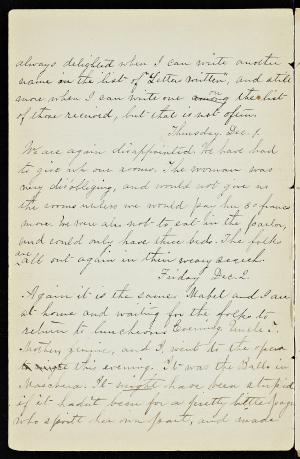 always delighted when I can write another
name on the list of "Letters written", and still
more when I can write one on the list
of those received, but that is not often.
Thursday. Dec. 1.
We are again disappointed. We have had
to give up our rooms. The woman was
very disobliging, and would not give us
the rooms unless we would pay her 50 francs
more. We were also not to eat in the parlor,
and could only have three beds. The folks
are all out again in their weary search.
Friday. Dec. 2.
Again it is the same. Mabel and I are
at home and waiting for the folks to
return to luncheon. Evening. Uncle
Mother, and I went to the opera
this evening. It was the Ballo in
Maschera. It might have been stupid
if it hadn't been for a pretty little page
who spoilt her own part, and made